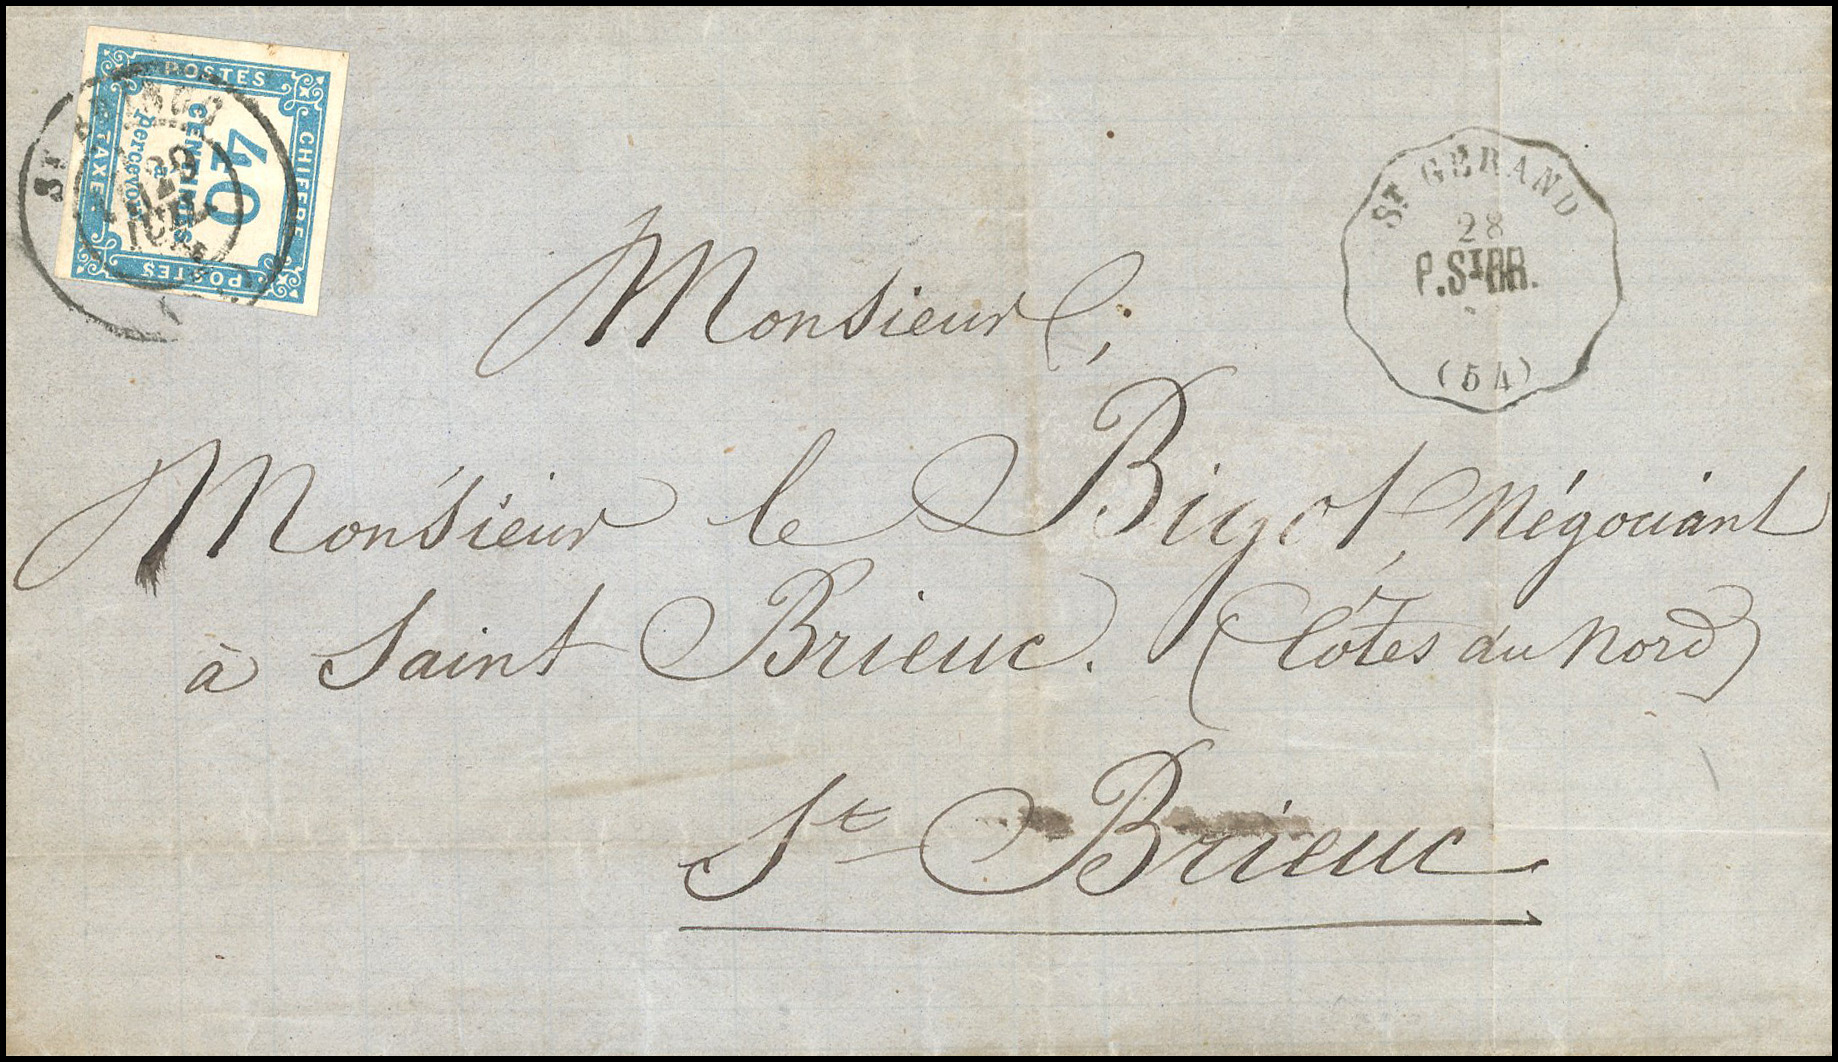 POSTES
CHIFFRE
TAXE
POSTES
40
CENTIMES
à
percevoir
ST BRIEUC
29
JUIL.
ST GERAND
28
P.STBR.
(54)
Monsieur,
Monsieur le Bigot, Négociant
à Saint Brieuc. (Côtes du Nord)
St Brieuc